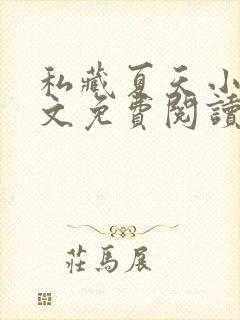 私藏夏天小
文免費閱讀
莊馬展